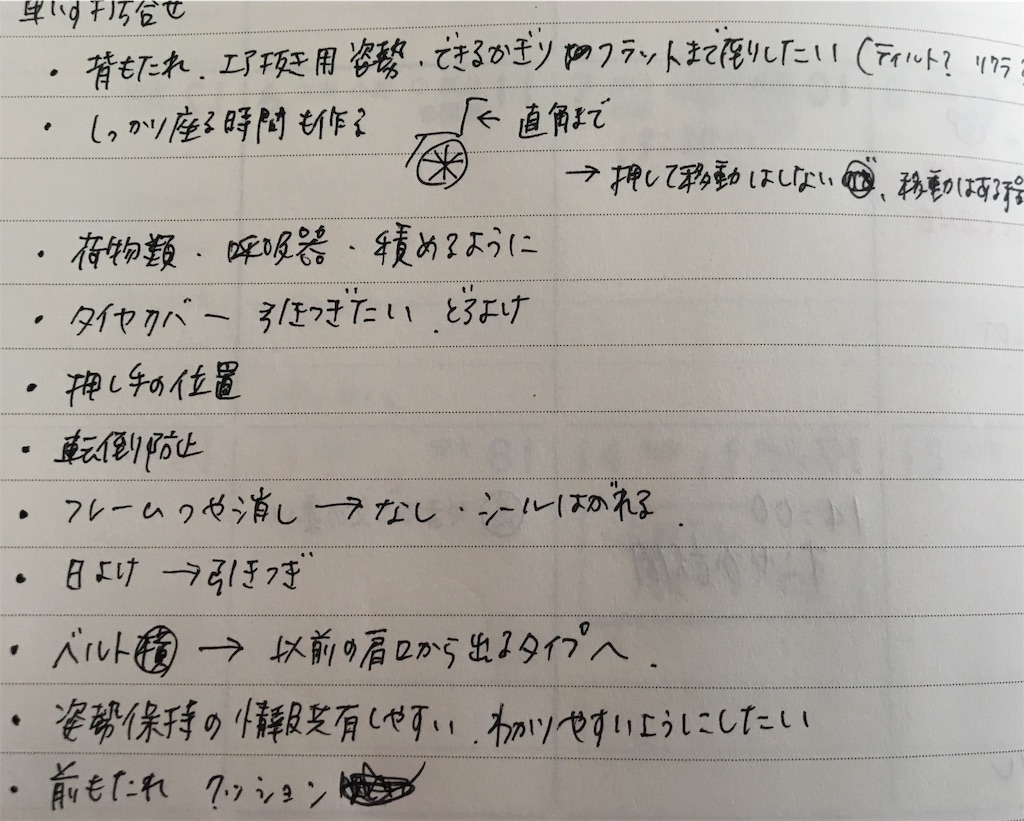 車いす打合せ
・背もたれ、エア抜き用姿勢・できるかぎりフラットまで倒したい(ティルト? リクラ
・しっかり座る時間も作る ← 直角まで
→ 押して移動はしない、移動はある程
・荷物類・呼吸器・積めるように
・タイヤカバー 引きつぎたい、どろよけ
・押し手の位置
・転倒防止
・フレームつや消し → なし・シールはがれる、
・日よけ → 引きつぎ
・ベルト → 以前の肩口から出るタイプへ、
・姿勢保持の情報共有しやすい、わかりやすいようにしたい
・前もたれ クッション